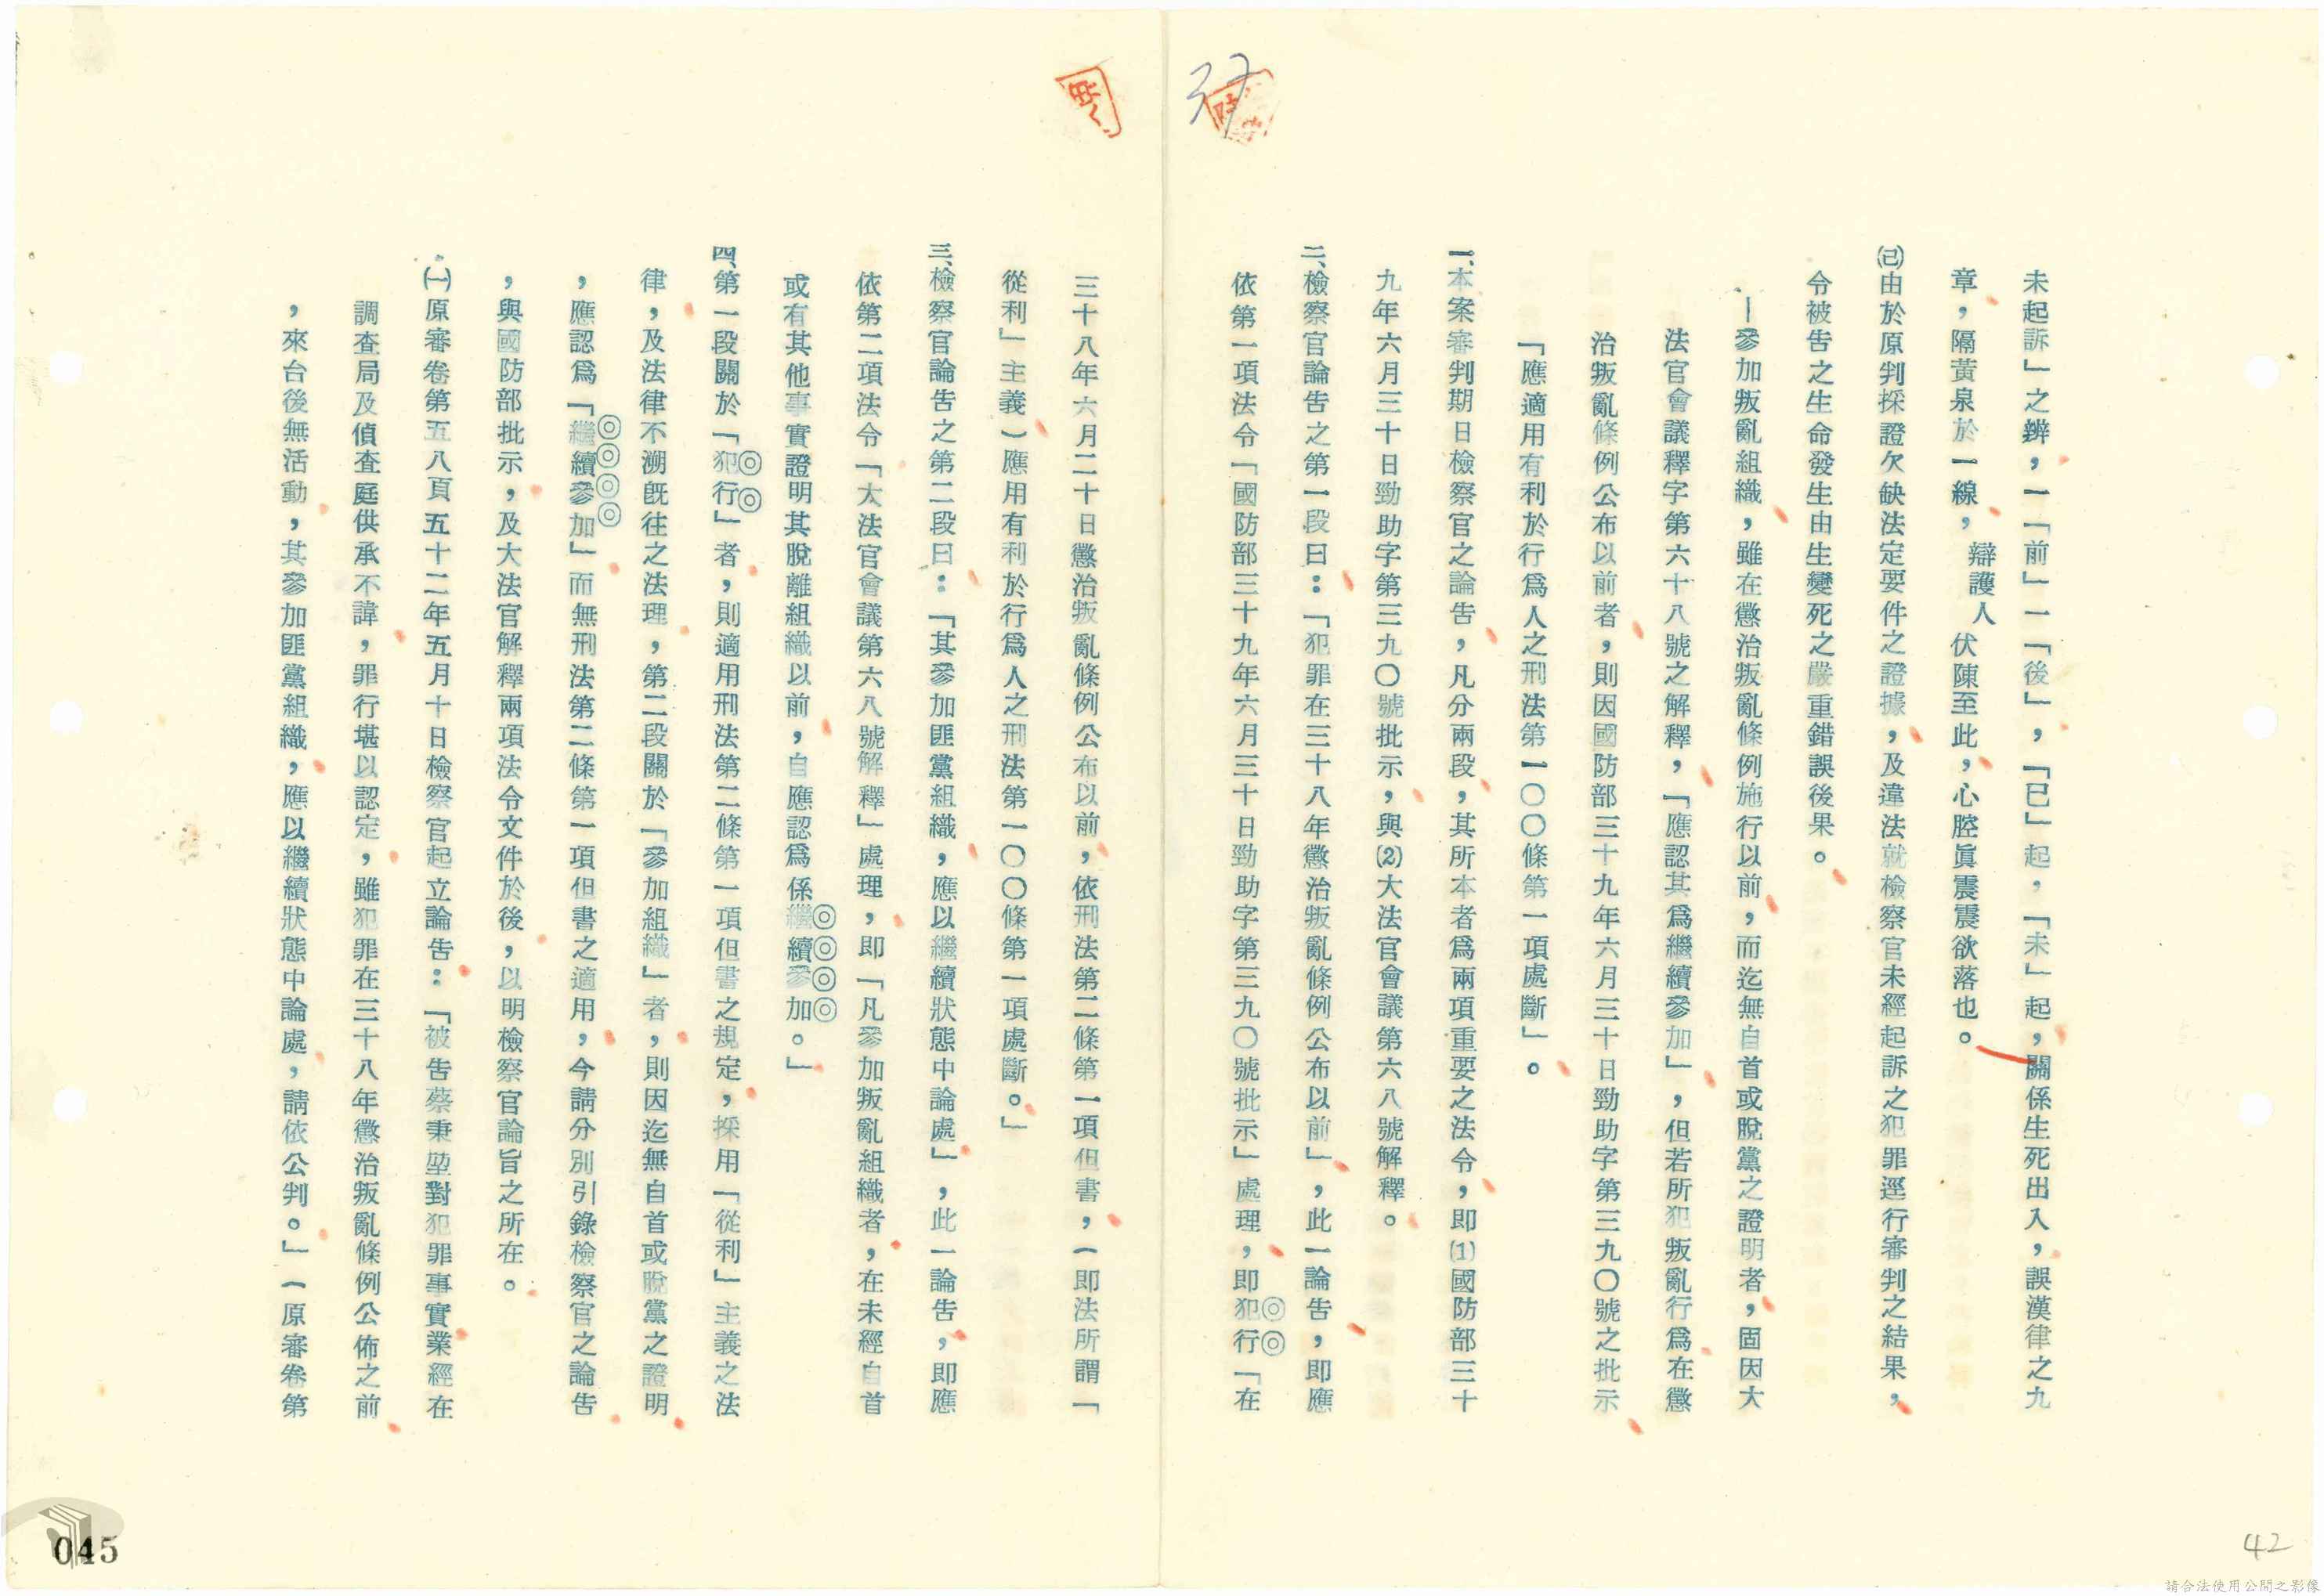 未起訴」之辨，一「前」一「後」，「已」起，「未」起，關係生死出入，誤漢律之九
章，隔黃泉於一線，辯護人伏陳至此，心膛眞震震欲落也。
㈥由於原判採證欠缺法定要件之證據，及違法就檢察官未經起訴之犯罪逕行審判之結果，
令被告之生命發生由生變死之嚴重錯誤後果。
—參加叛亂組織，雖在懲治叛亂條例施行以前，而迄無自首或脫黨之證明者，固因大
法官會議釋字第六十八號之解釋，「應認其爲繼續參加」，但若所犯叛亂行爲在懲
治叛亂條例公布以前者，則因國防部三十九年六月三十日勁助字第三九〇號之批示
「應適用有利於行爲人之刑法第一〇〇條第一項處斷」。
一、本案審判期日檢察官之論告，凡分兩段，其所本者爲兩項重要之法令，即⑴國防部三十
九年六月三十日勁助字第三九〇號批示，與⑵大法官會議第六八號解釋。
二、檢察官論告之第一段曰：「犯罪在三十八年懲治叛亂條例公布以前」，此一論告，即應
依第一項法令「國防部三十九年六月三十日勁助字第三九〇號批示」處理，即犯行「在
三十八年六月二十日懲治叛亂條例公布以前，依刑法第二條第一項但書，（即法所謂「
從利」主義）應用有利於行爲人之刑法第一〇〇條第一項處斷。」
三、檢察官論告之第二段曰：「其參加匪黨組織，應以繼續狀態中論處」，此一論告，即應
依第二項法令「大法官會議第六八號解釋」處理，即「凡參加叛亂組織者，在未經自首
或有其他事實證明其脫離組織以前，自應認爲係繼續參加。」
四、第一段關於「犯行」者，則適用刑法第二條第一項但書之規定，採用「從利」主義之法
律，及法律不溯既往之法理，第二段關於「參加組織」者，則因迄無自首或脫黨之證明
，應認爲「繼續參加」而無刑法第二條第一項但書之適用，今請分別引錄檢察官之論告
，與國防部批示，及大法官解釋兩項法令文件於後，以明檢察官論旨之所在。
㈠原審卷第五八頁五十二年五月十日檢察官起立論告：「被告蔡秉堃對犯罪事實業經在
調查局及偵查庭供承不諱，罪行堪以認定，雖犯罪在三十八年懲治叛亂條例公佈之前
，來台後無活動，其參加匪黨組織，應以繼續狀態中論處，請依公判。」（原審卷第
37
045
42
請合法使用公開之影像